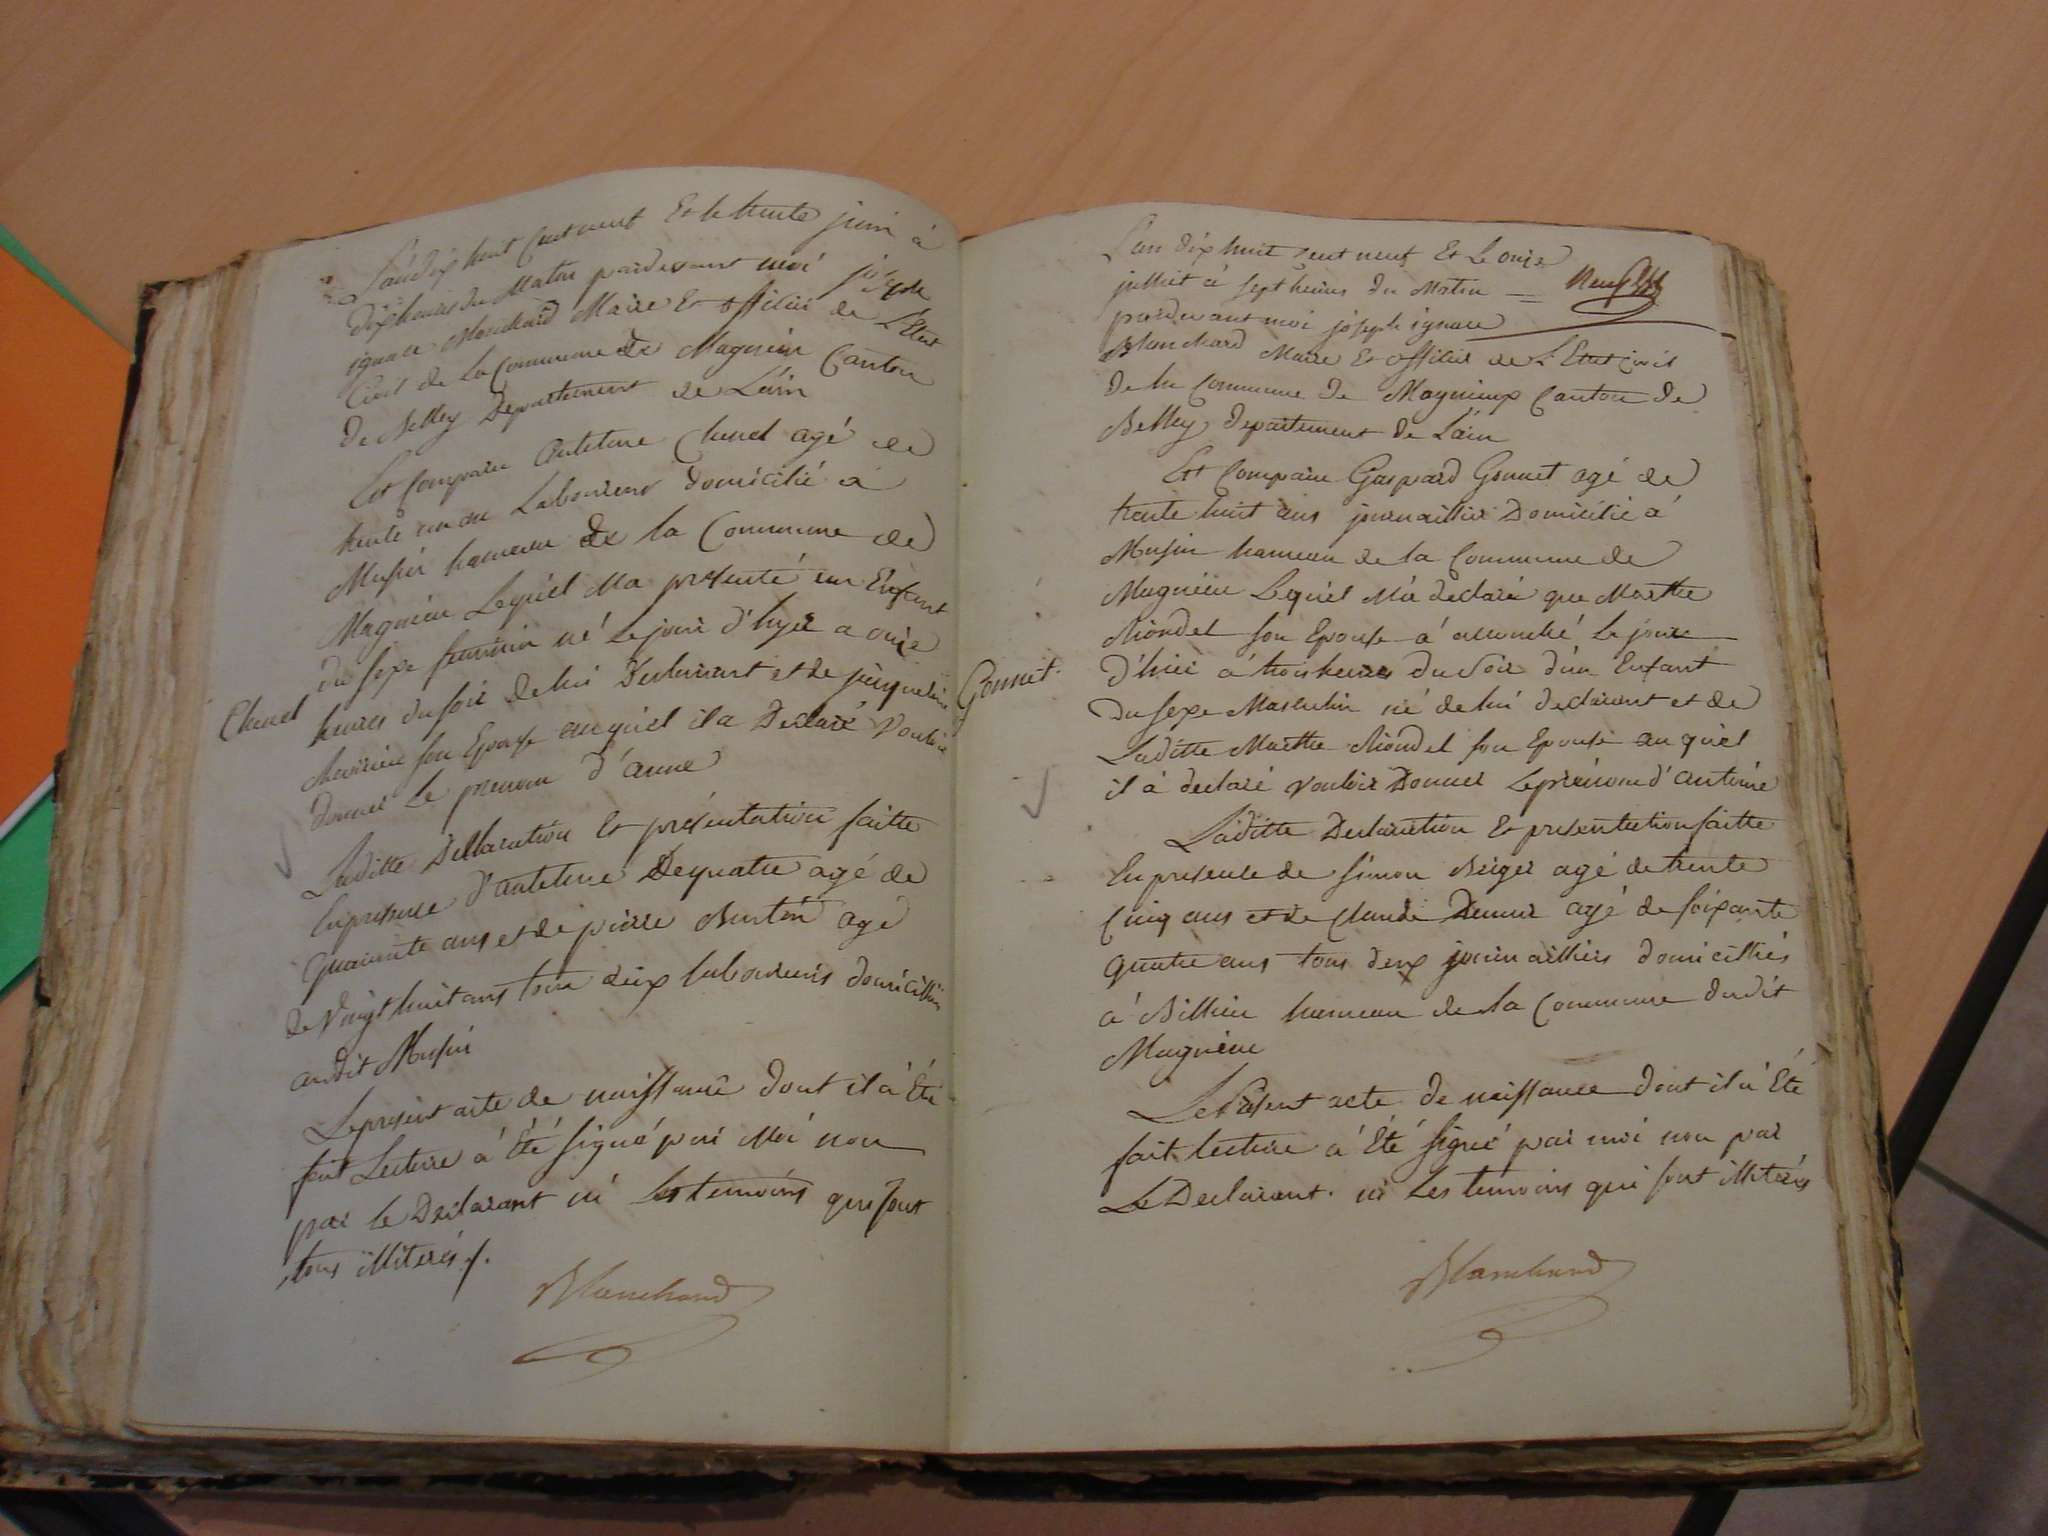 L'an dix huit Cent neuf Et le trente juin à
dix heures du Matin pardevant moi joseph
ignace Blanchard Maire Et officier de L'Etat
Civil de La Commune de Magnieu Canton
de Belley Departement de L'ain
Est Comparu Antelme Chenel agé de
trente un an Laboureur domicilié à
Musin hameau de la Commune de
Magnieu Lequel M'a presenté un Enfant
du sexe feminin né Le jour d'hyer a onze
Chenel
heures du soir de lui Declarant et de jacqueline
son Epouse auquel il a Declaré Vouloir
donner Le prenom d'anne
Laditte Declaration Et présentation faitte
En presence d'antelme Dequatre agé de
quarante ans et de pierre Burtin agé
de Vingt huit ans tous deux laboureurs domicilliés
audit Musin
Le present acte de naissance dont il à Eté
fait Lecture à Eté signé par Moi non
par le Declarant ni Les temoins qui sont
tous illiterés ./.
Blanchard
L'an dix huit cent neuf Et Le onze
juilliet à sept heures du Matin
pardevant moi joseph ignace
Blanchard Maire Et officier de L'Etat Civil
de la Commune de Magnieux Canton de
Belley departement de L'ain
Est Comparu Gaspard Gonnet agé de
trente huit ans journaillier Domicilié à
Musin hameau de la Commune de
Magnieu Lequel M'à declaré que Marthe
Riondel son Epouse à accouché Le jour
Gonnet.
d'hier à trois heures du soir d'un Enfant
du sexe Masculin né de lui declarant et de
Laditte Marthe Riondel son Epouse auquel
il à declaré vouloir Donner Le prénom d'antoine
Laditte Declaration Et presentation faitte
En presence de simon Berger agé de trente
Cinq ans et de Claude agé de soixante
quatre ans tous deux journailliers domicilliés
à Billieu hameau de la Commune dudit
Magnieu
Le Present acte de naissance dont il à Eté
fait lecture à Eté signé par moi non par
Le Declarant. ni Les temoins qui sont illiterés
Blanchard